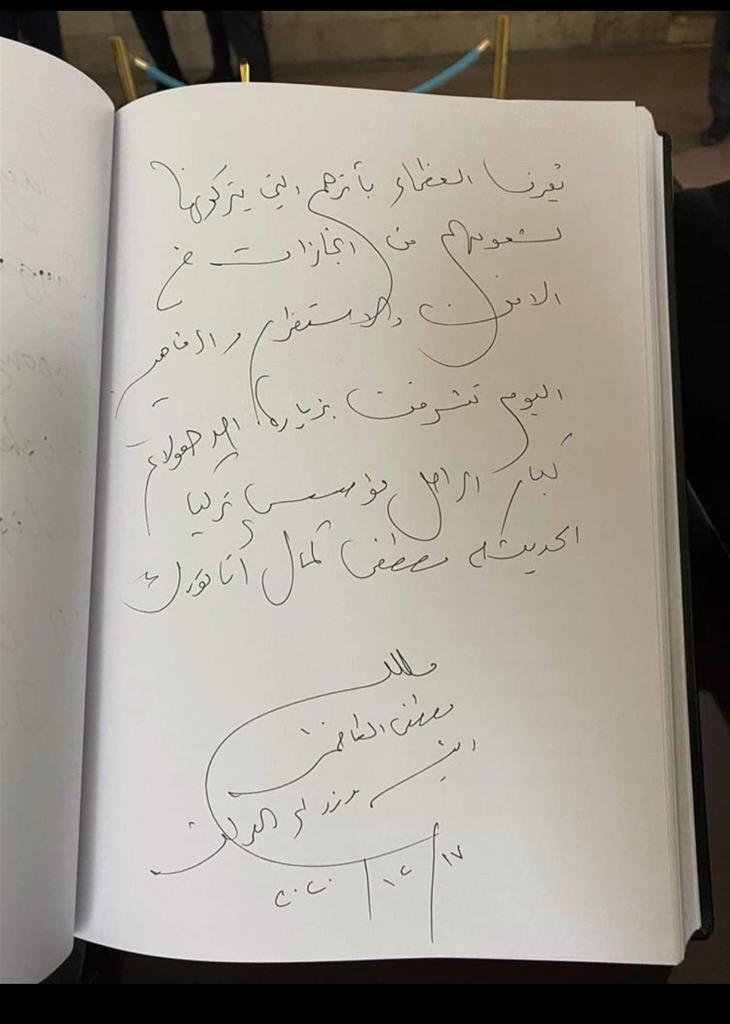 يعرف العظماء بأثرهم التي يتركونها
لشعوبهم من انجازات في
الامن والاستقرار والرفاهية
اليوم تشرفت بزيارة احد هؤلاء
كبار الراحل مؤسس تركيا
الحديثة مصطفى كمال أتاتورك
مصطفى الكاظمي
رئيس وزراء العراق
١٧/١٢/٢٠٢٠